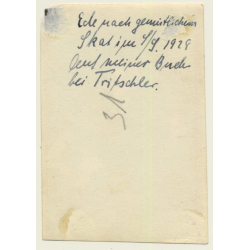 Ecke nach gemütlichem
Skat im 4/9. 1929
auf meiner Bude
bei Tritschler.
31